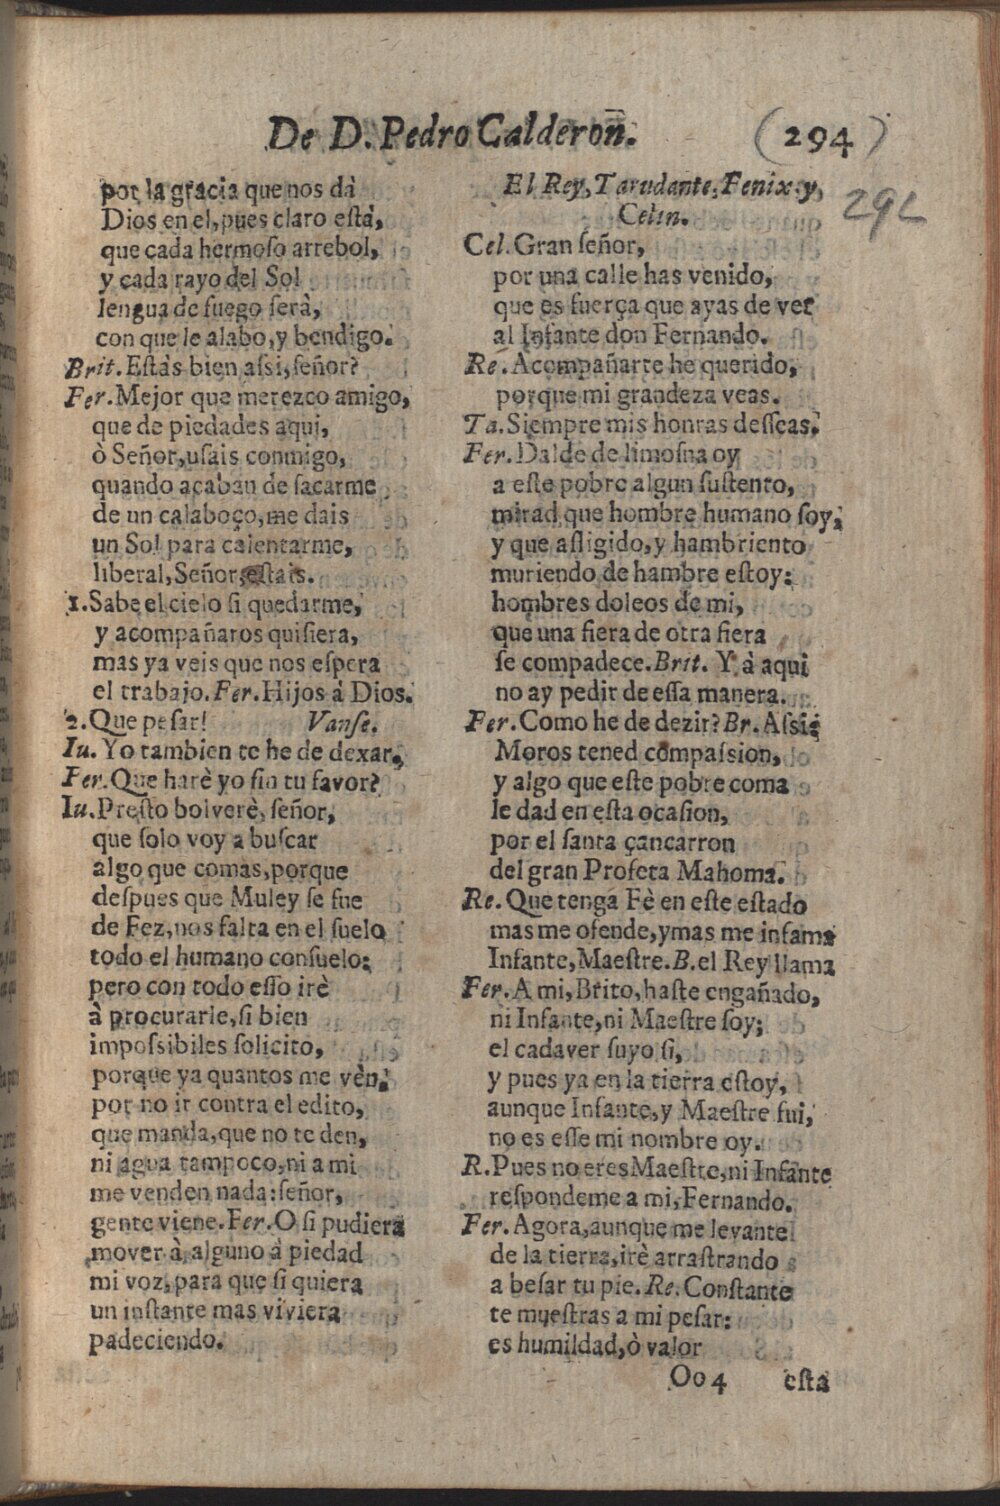 De D. Pedro Calderon. (294)
292
por la gracia que nos dà
Dios en el, pues claro està,
que cada hermoso arrebol,
y cada rayo del Sol
lengua de fuego serà,
con que le alabo, y bendigo.
Brit. Estàs bien assi, señor?
Fer. Mejor que merezco amigo,
que de piedades aqui,
ò Señor, usais conmigo,
quando acaban de sacarme
de un calaboço, me dais
un Sol para calentarme,
liberal, Señor, estais.
1. Sabe el cielo si quedarme,
y acompañaros quisiera,
mas ya veis que nos espera
el trabajo. Fer. Hijos à Dios.
2. Que pesar! Vanse.
Iu. Yo tambien te he de dexar.
Fer. Que harè yo sin tu favor?
Iu. Presto bolverè, señor,
que solo voy a buscar
algo que comas, porque
despues que Muley se fue
de Fez, nos falta en el suelo
todo el humano consuelo;
pero con todo esso irè
à procurarle, si bien
impossibiles solicito,
porque ya quantos me vèn,
por no ir contra el edito,
que manda, que no te den,
ni agua tampoco, ni a mi
me venden nada: señor,
gente viene. Fer. O si pudiera
mover à alguno à piedad
mi voz, para que si quiera
un instante mas viviera
padeciendo.
El Rey, Tarudante, Fenix, y
Celin.
Cel. Gran señor,
por una calle has venido,
que es fuerça que ayas de ver
al Infante don Fernando.
Re. Acompañarte he querido,
porque mi grandeza veas.
Ta. Siempre mis honras desseas.
Fer. Dalde de limosna oy
a este pobre algun sustento,
mirad que hombre humano soy,
y que afligido, y hambriento
muriendo de hambre estoy:
hombres doleos de mi,
que una fiera de otra fiera
se compadece. Brit. Y à aqui
no ay pedir de essa manera.
Fer. Como he de dezir? Br. Assi:
Moros tened compassion,
y algo que este pobre coma
le dad en esta ocasion,
por el santa çancarron
del gran Profeta Mahoma.
Re. Que tenga Fè en este estado
mas me ofende, ymas me infama
Infante, Maestre. B. el Rey llama
Fer. A mi, Brito, haste engañado,
ni Infante, ni Maestre soy;
el cadaver suyo si,
y pues ya en la tierra estoy,
aunque Infante, y Maestre fui,
no es esse mi nombre oy.
R. Pues no eres Maestre, ni Infante
respondeme a mi, Fernando.
Fer. Agora, aunque me levante
de la tierra, irè arrastrando
a besar tu pie. Re. Constante
te muestras a mi pesar:
es humildad, ò valor
Oo 4 esta